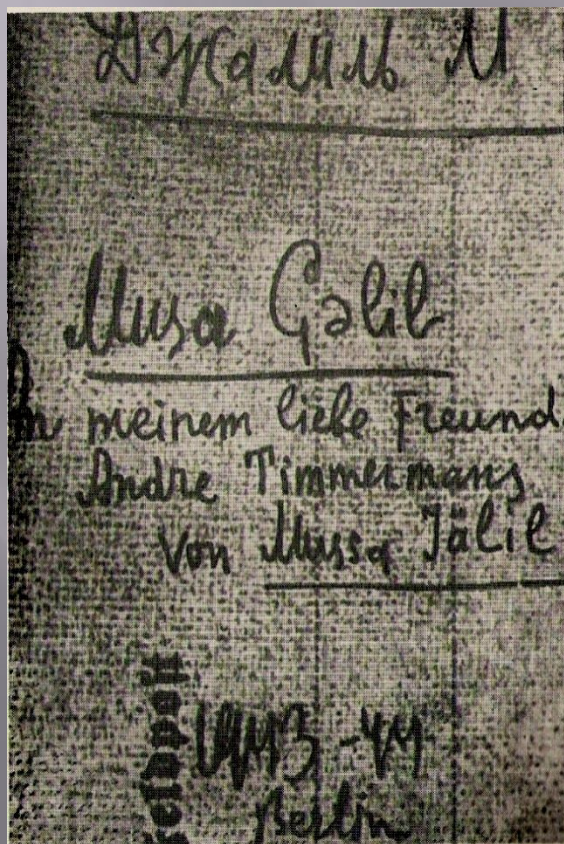 Джалиль М
Musa Çəlil
meinem liebe Freund
Andre Timmermans
von Mussa Jälil
1943-44
Berlin